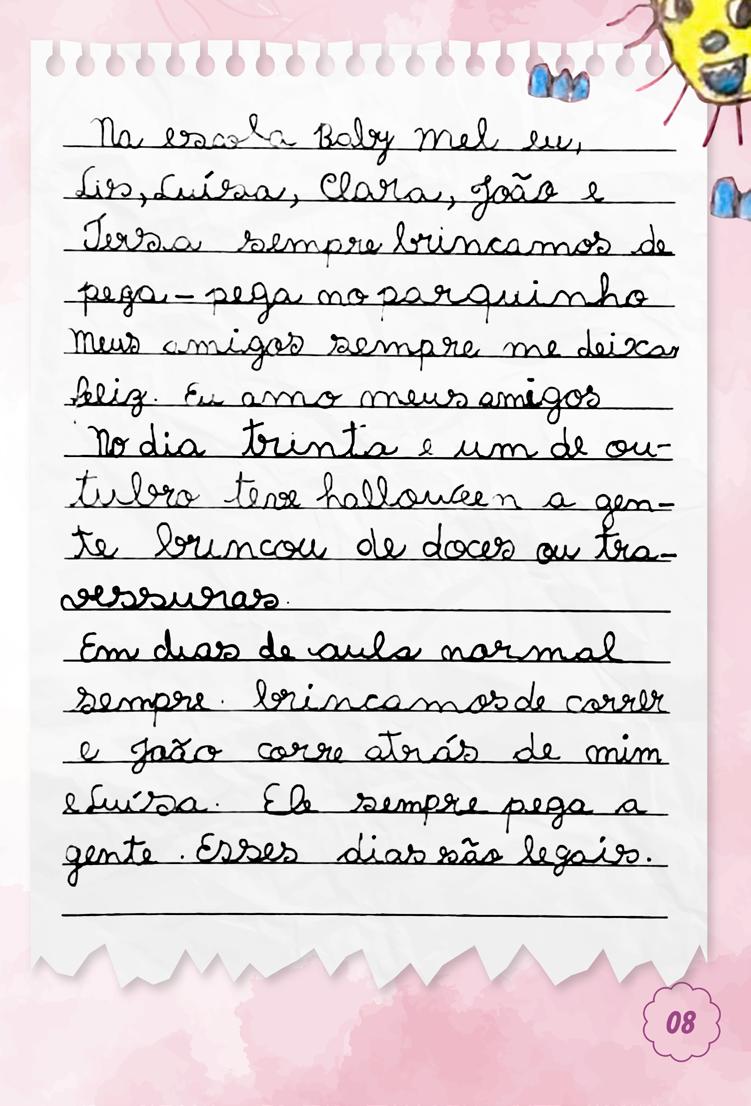 Na escola Baby Mel eu,
Lis, Luísa, Clara, João e
Tersa sempre brincamos de
pega-pega no parquinho
Meus amigos sempre me deixar
feliz. Eu amo meus amigos
No dia trinta e um de ou-
tubro teve halloween a gen-
te brincou de doces ou tra-
vessuras.
Em dias de aula normal
sempre. brincamos de correr
e João corre atrás de mim
e Luísa. Ele sempre pega a
gente. Esses dias são legais.
08